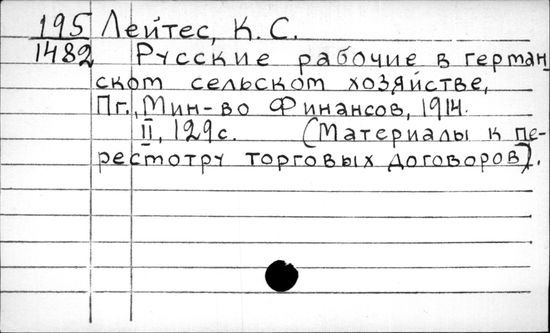 195 Лейтес, К. С.
1482 Русские рабочие в герман-
ском сельском хозяйстве,
Пг., Мин-во Финансов, 1914.
II, 129 с. (Материалы к пе-
ресмотру торговых договоров).